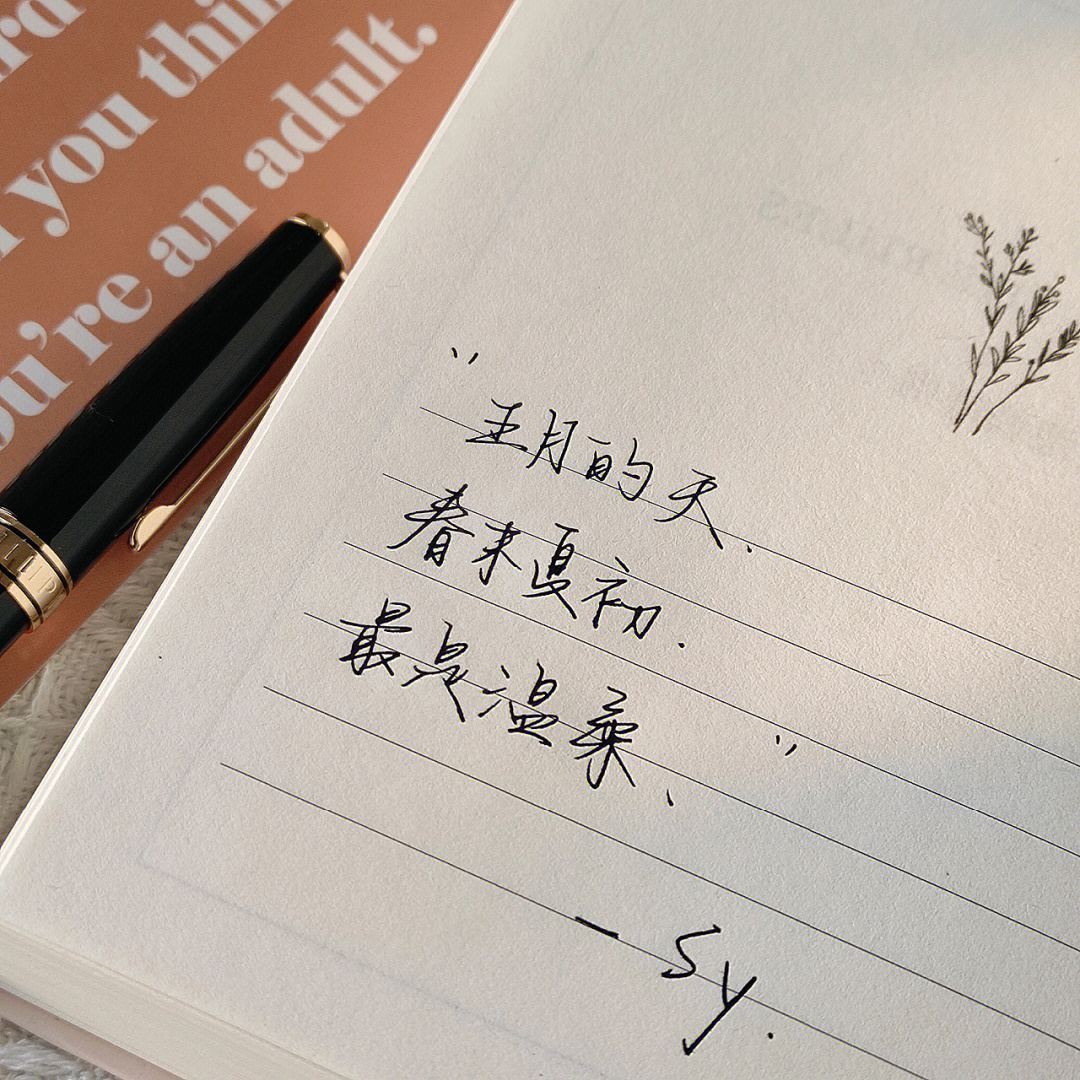 rd
you thin
ou're an adult.
"
五月的天、
春末夏初.
最是温柔、"
— Sy.